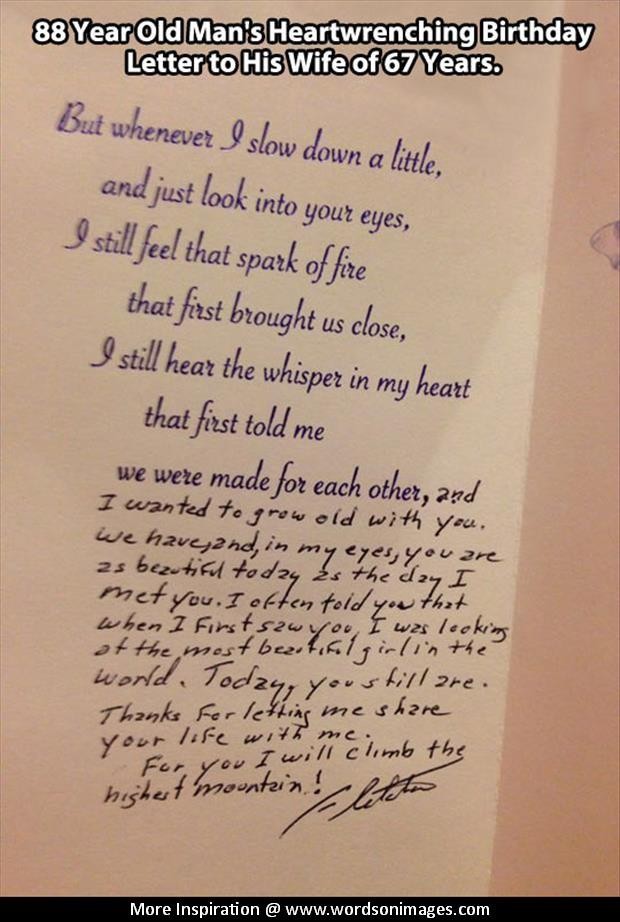 88 Year Old Man's Heartwrenching Birthday
Letter to His Wife of 67 Years.
But whenever I slow down a little,
and just look into your eyes,
I still feel that spark of fire
that first brought us close,
I still hear the whisper in my heart
that first told me
we were made for each other, and
I wanted to grow old with you.
We have, and, in my eyes, you are
as beautiful today as the day I
met you. I often told you that
when I first saw you, I was looking
at the most beautiful girl in the
world. Today, you still are.
Thanks for letting me share
your life with me.
For you I will climb the
highest mountain!
Fletcher
More Inspiration @ www.wordsonimages.com